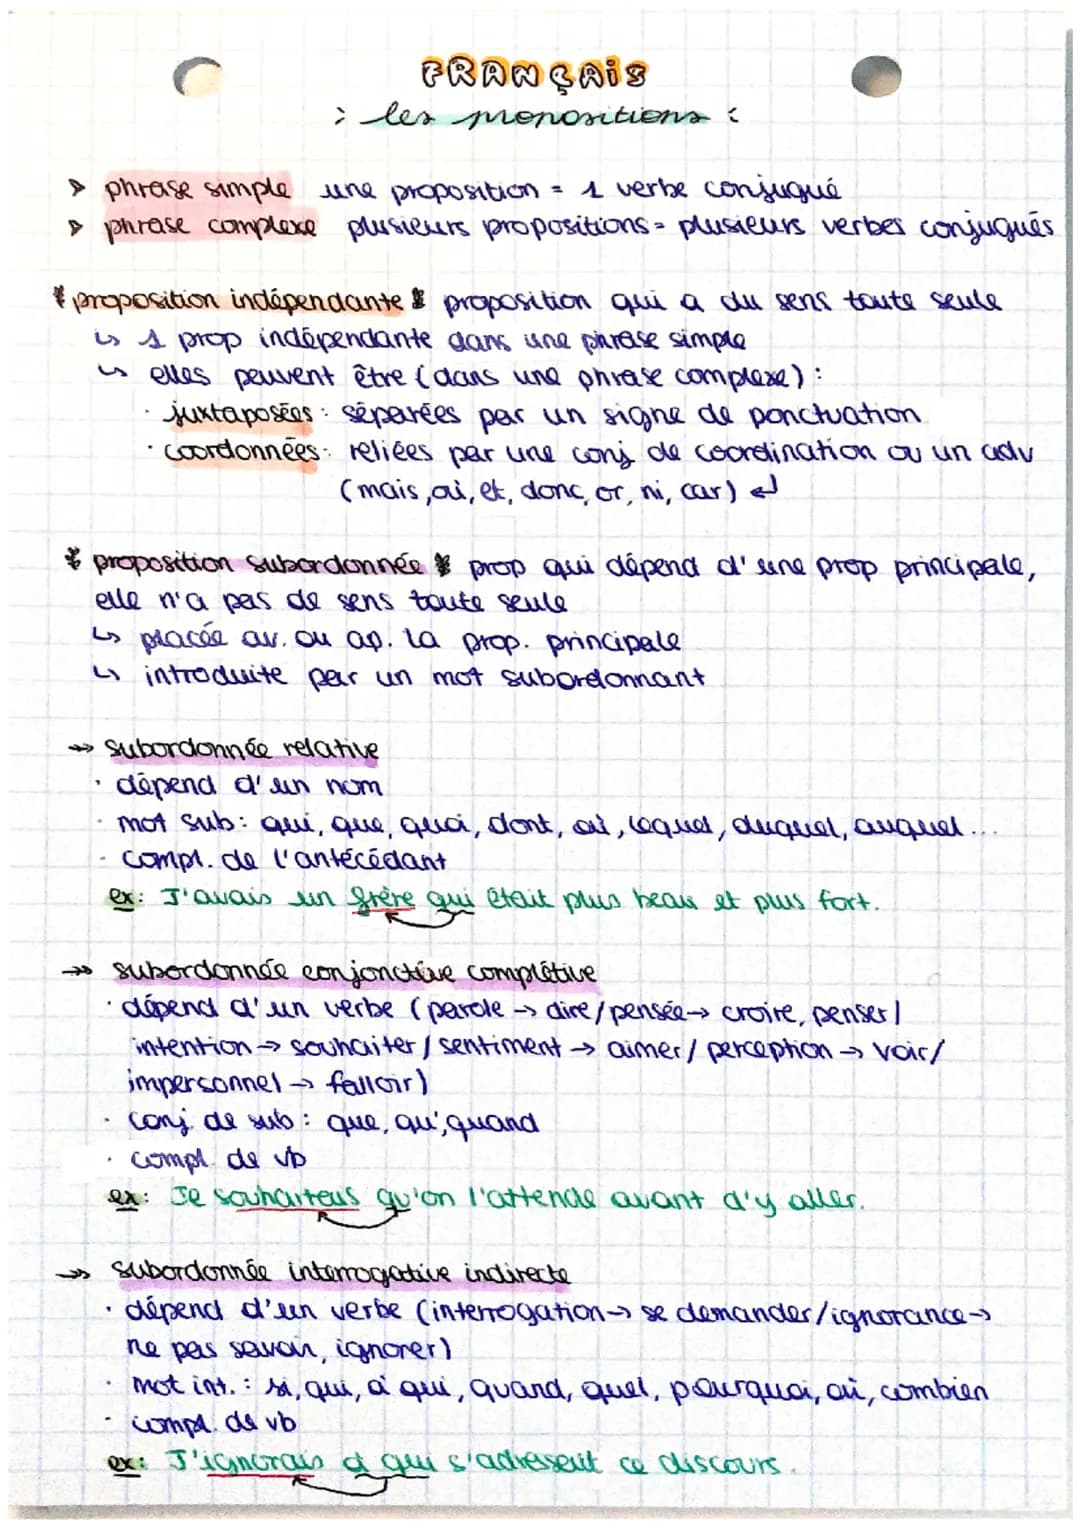 FRANÇAiS
: les propositions :
> phrase simple une proposition = 1 verbe conjugué
> phrase complexe plusieurs propositions = plusieurs verbes conjugués
* proposition indépendante * proposition qui a du sens toute seule
↳ 1 prop indépendante dans une phrase simple
↳ elles peuvent être (dans une phrase complexe) :
· juxtaposées : séparées par un signe de ponctuation
· coordonnées : reliées par une conj de coordination ou un adv
(mais, ou, et, donc, or, ni, car) ↲
* proposition subordonnée * prop qui dépend d'une prop principale,
elle n'a pas de sens toute seule
↳ placée av. ou ap. la prop. principale
↳ introduite par un mot subordonnant
->> subordonnée relative
· dépend d'un nom
· mot sub : qui, que, quoi, dont, où, lequel, duquel, auquel...
· compl. de l'antécédant
ex : J'avais un frère qui était plus beau et plus fort.
->> subordonnée conjonctive complétive
· dépend d'un verbe (parole -> dire / pensée -> croire, penser /
intention -> souhaiter / sentiment -> aimer / perception -> voir /
impersonnel -> falloir)
· conj. de sub : que, qu', quand
· compl. de vb
ex : Je souhaiterais qu'on l'attende avant d'y aller.
->> subordonnée interrogative indirecte
· dépend d'un verbe (interrogation -> se demander / ignorance ->
ne pas savoir, ignorer)
· mot int. : si, qui, à qui, quand, quel, pourquoi, où, combien
· compl. de vb
ex : J'ignorais à qui s'adressait ce discours.